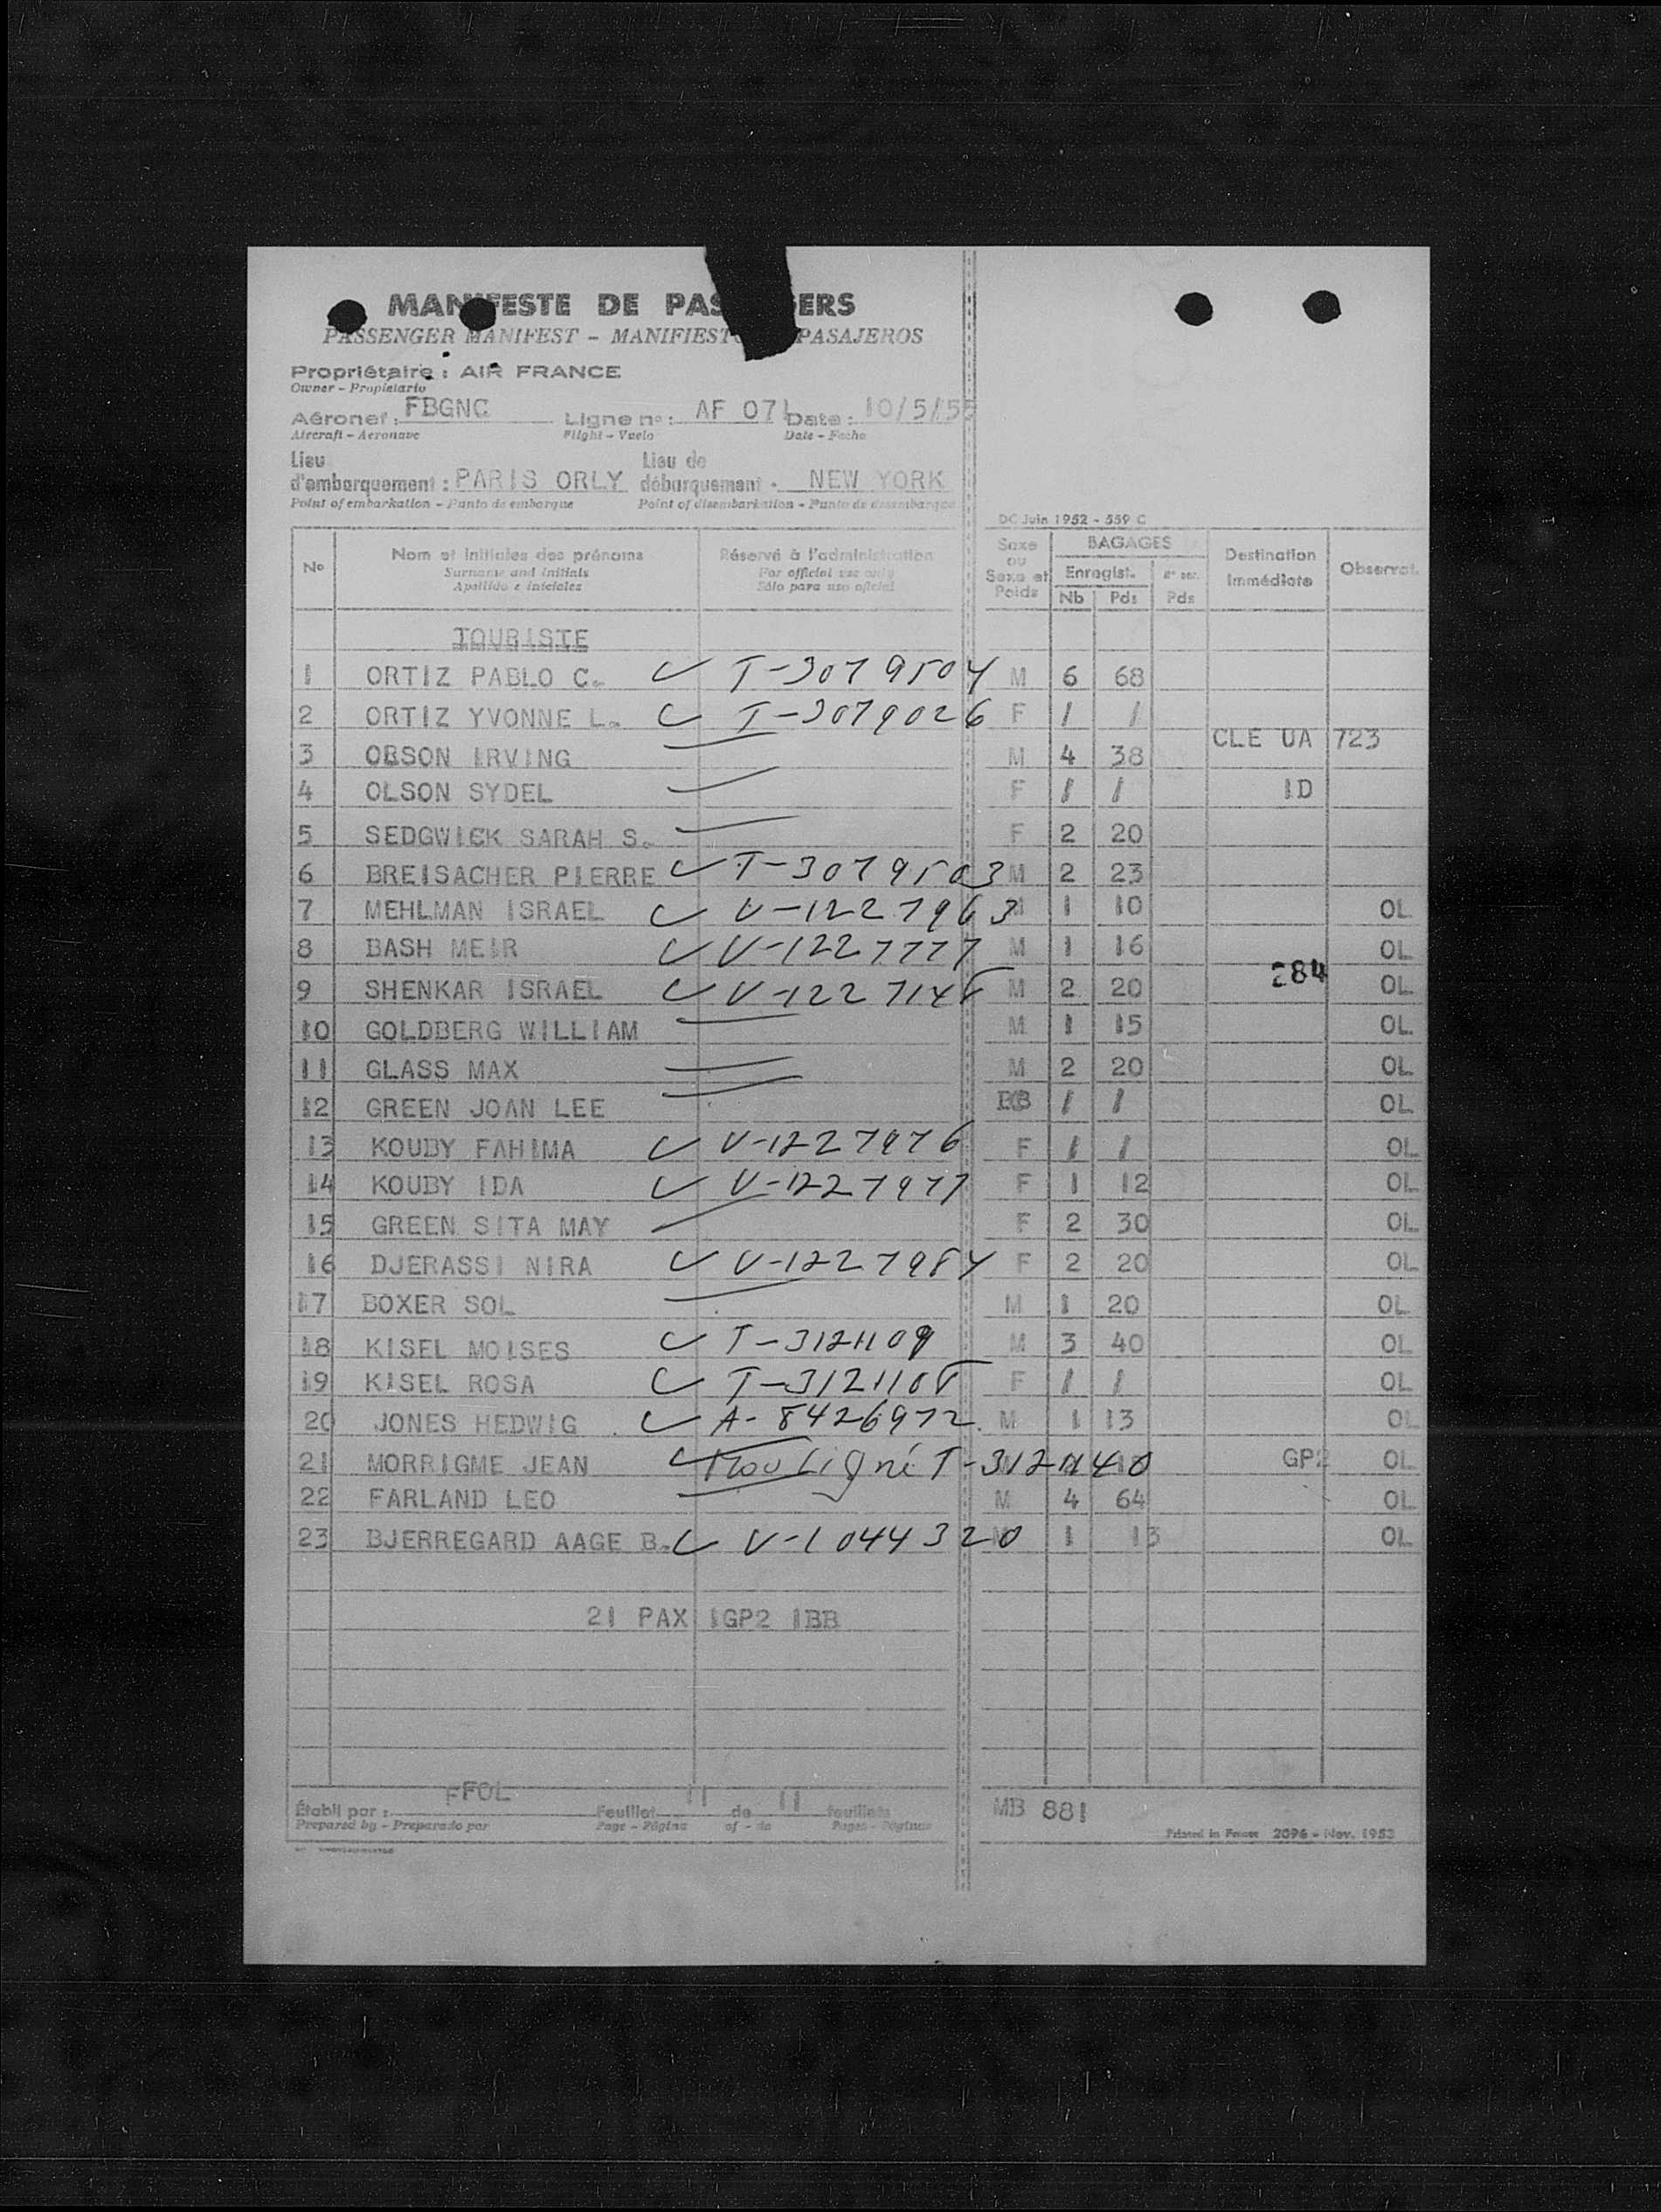 MANIFESTE DE PAS ERS
PASSENGER MANIFEST - MANIFIESTO PASAJEROS
Propriétaire : AIR FRANCE
Owner - Propietario
Aéronef : FBGNC Ligne n° : AF 071 Date : 10/5/55
Aircraft - Aeronave Flight - Vuelo Date - Fecha
Lieu Lieu de
d'embarquement : PARIS ORLY débarquement - NEW YORK
Point of embarkation - Punto de embarque Point of disembarkation - Punto de desembarque
DC Juin 1952 - 559 C
N° Nom et initiales des prénoms Réservé à l'administration Sexe ou Sexe et Poids BAGAGES Destination immédiate Observat.
Surname and initials For official use only Enregist.
Apellido e iniciales Sólo para uso oficial Nb Pds Pds
TOURISTE
1 ORTIZ PABLO C. T-3079504 M 6 68
2 ORTIZ YVONNE L. T-3079026 F / /
3 OBSON IRVING M 4 38 CLE UA 723
4 OLSON SYDEL F / / ID
5 SEDGWICK SARAH S. F 2 20
6 BREISACHER PIERRE T-3079503 M 2 23
7 MEHLMAN ISRAEL V-1227963 M 1 10 OL
8 BASH MEIR V-1227777 M 1 16 OL
9 SHENKAR ISRAEL V-1227148 M 2 20 284 OL
10 GOLDBERG WILLIAM M 1 15 OL
11 GLASS MAX M 2 20 OL
12 GREEN JOAN LEE BB / / OL
13 KOUBY FAHIMA V-1227976 F / / OL
14 KOUBY IDA V-1227977 F 1 12 OL
15 GREEN SITA MAY F 2 30 OL
16 DJERASSI NIRA V-1227984 F 2 20 OL
17 BOXER SOL M 1 20 OL
18 KISEL MOISES T-3121109 M 3 40 OL
19 KISEL ROSA T-3121108 F / / OL
20 JONES HEDWIG A-8426972 M 1 13 OL
21 MORRIGME JEAN T-3121140 GP2 OL
22 FARLAND LEO M 4 64 OL
23 BJERREGARD AAGE B. V-1044320 M 1 13 OL
21 PAX 1GP2 1BB
Établi par : FFOL Feuillet 11 de 11 feuillets MB 881
Prepared by - Preparado por Page - Página of - de Pages - Páginas Printed in France 2096 - Nov. 1953